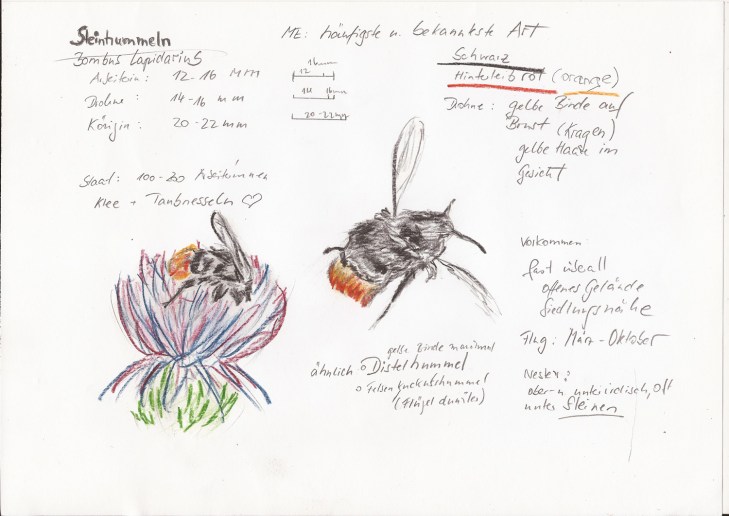 Steinhummeln
Bombus Lapidarius
Arbeiterin: 12-16 mm
Drohne: 14-16 mm
Königin: 20-22 mm
16mm
12
14 16mm
20-22mm
Staat: 100-200 Arbeiterinnen
Klee + Taubnesseln ♡
ME: häufigste u. bekannteste Art
Schwarz
Hinterleib rot (orange)
Drohne: gelbe Binde auf
Brust (Kragen)
gelbe Haare im
Gesicht
Vorkommen
fast überall
offenes Gelände
Siedlungsnähe
Flug: März-Oktober
Nester:
ober- u. unterirdisch, oft
unter Steinen
gelbe Binde
ähnlich o Distelhummel
o Felsenkuckuckshummel
(Flügel dunkler)